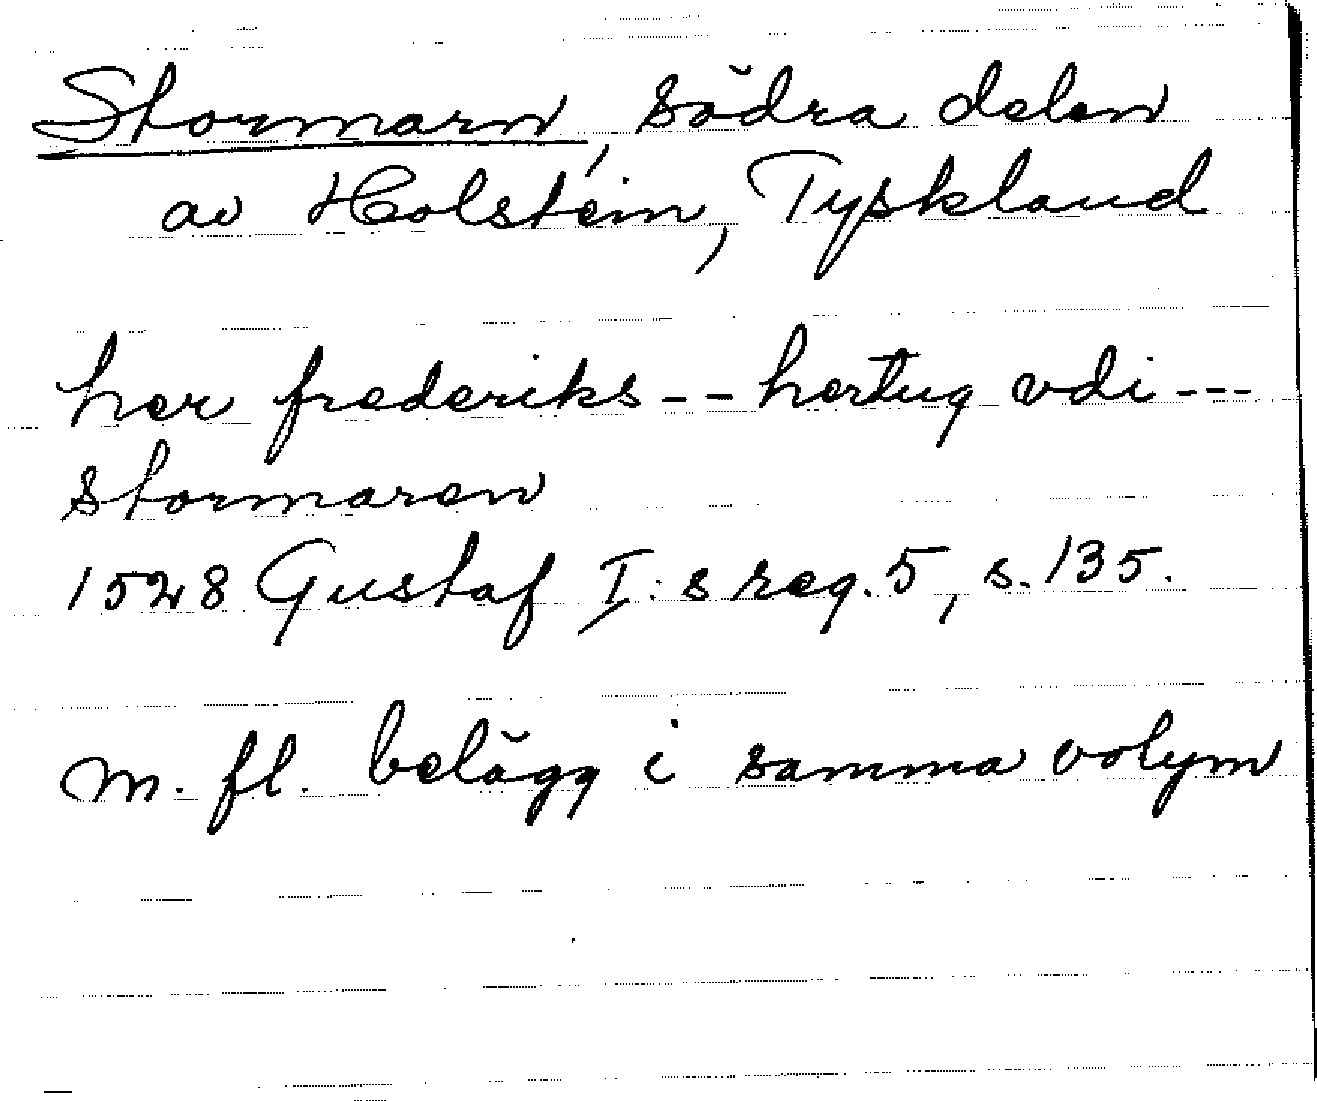 Stormarn, södra delen
av Holstein, Tyskland
her frederiks -- hertug vdi ---
stormaren
1528 Gustaf I:s reg. 5, s. 135.
m. fl. belägg i samma volym